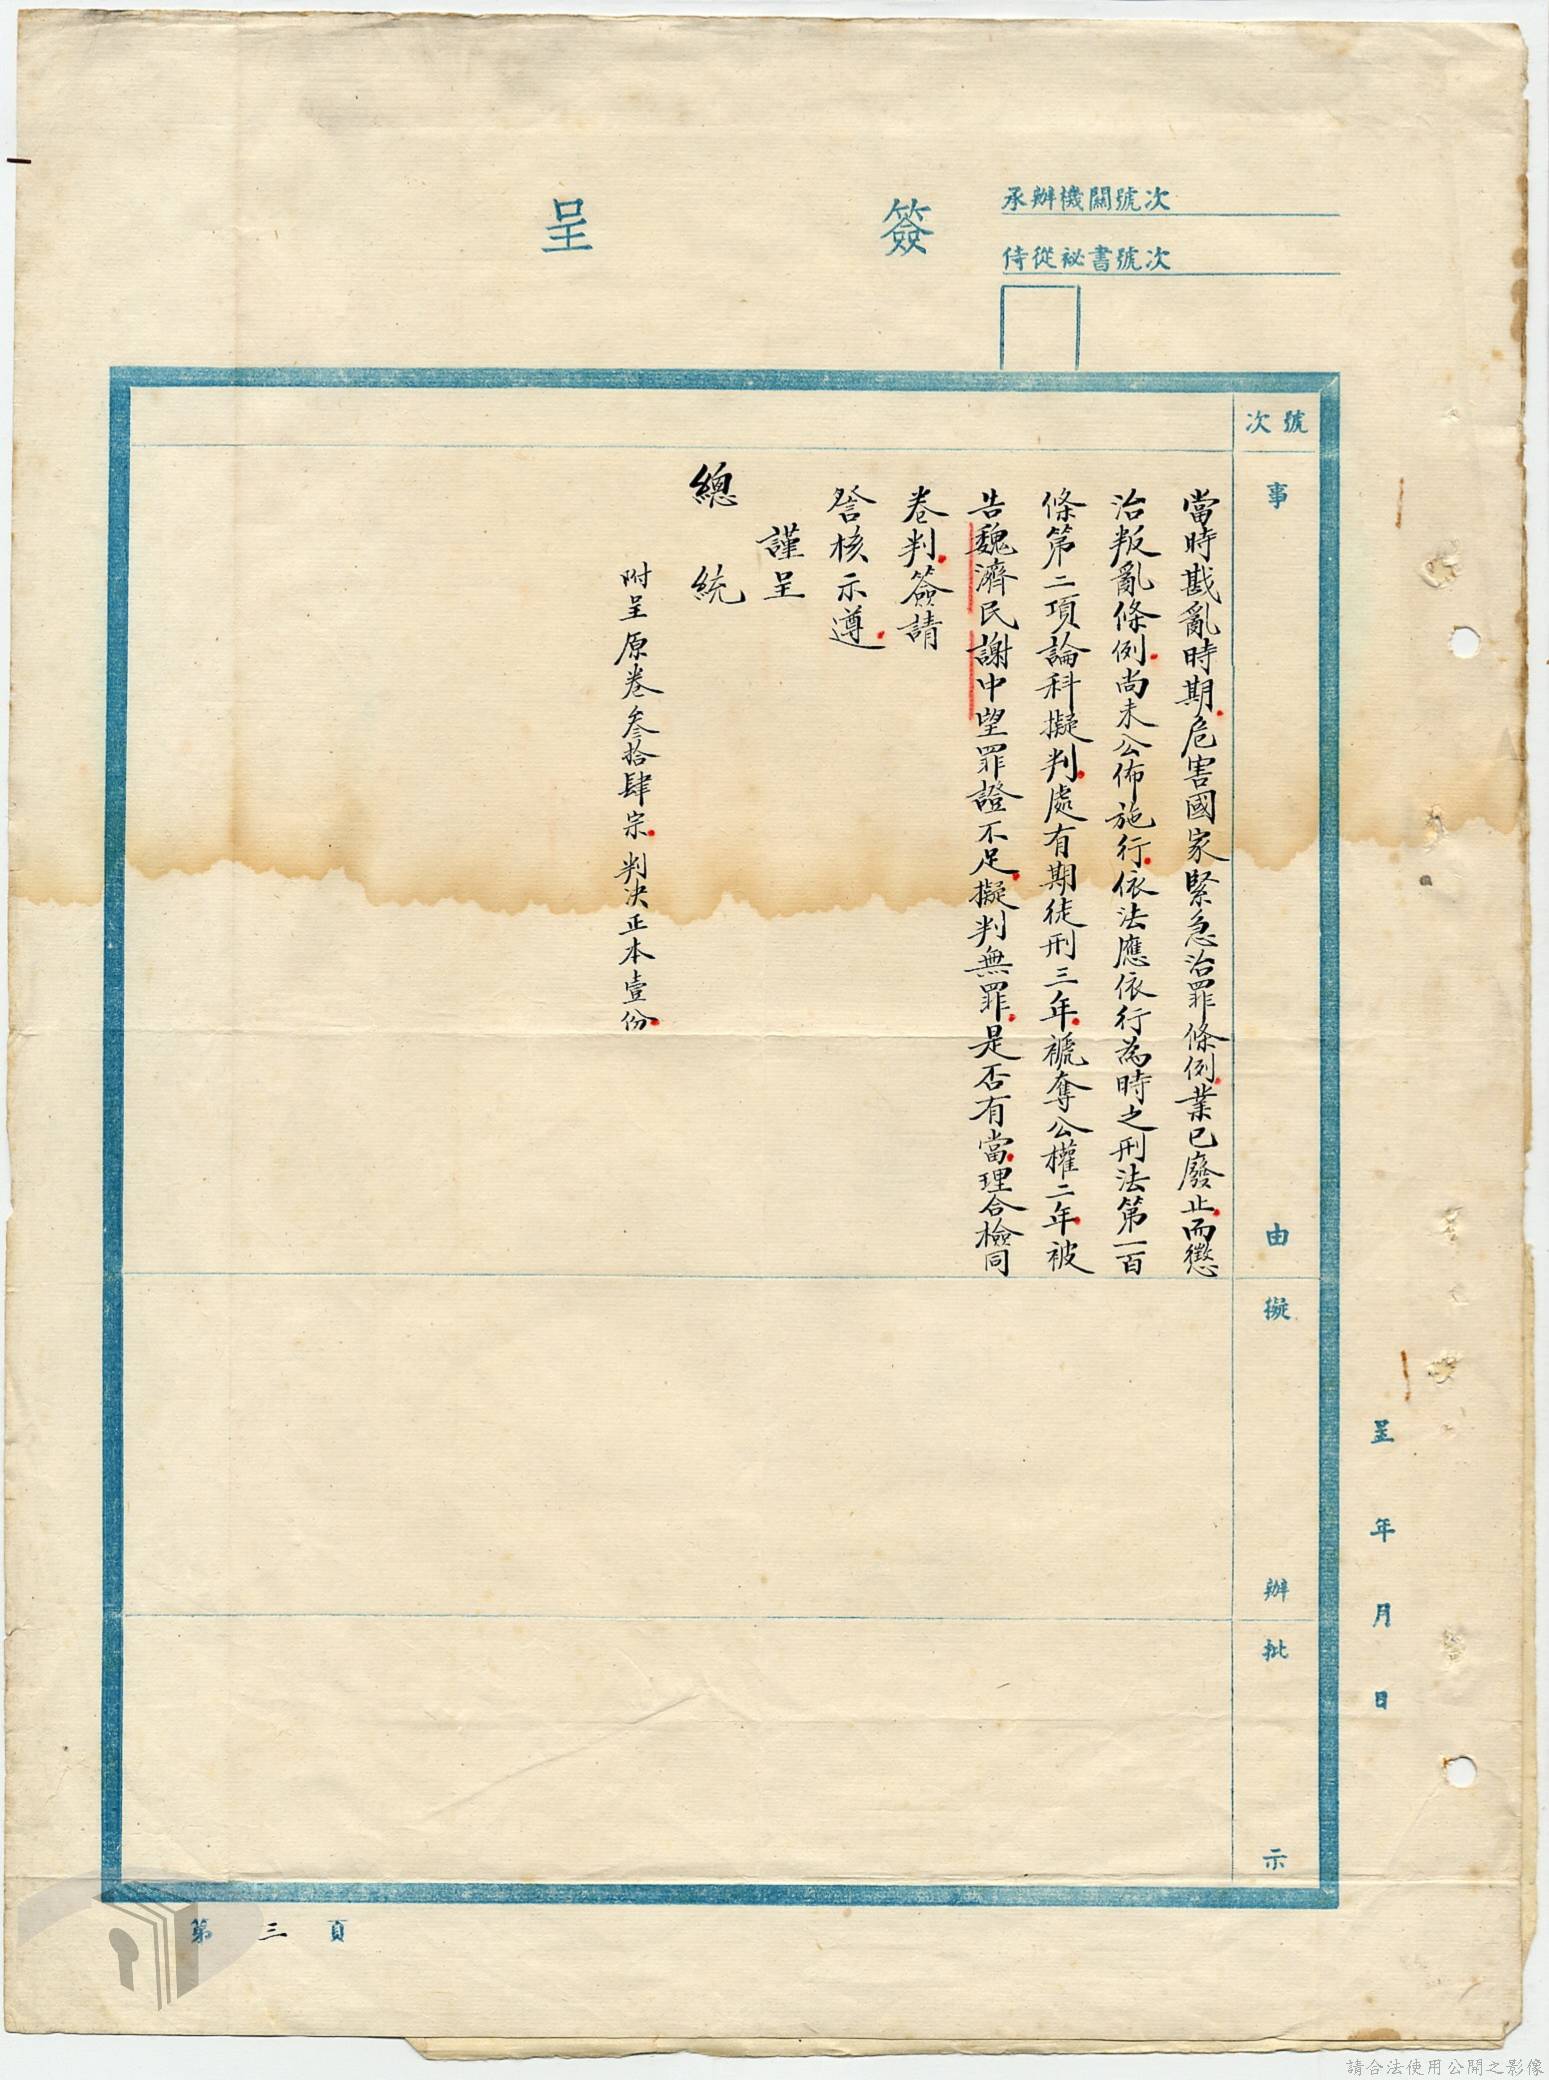 承辦機關號次
侍從祕書號次
簽呈
號次
事由
擬辦
批示
當時戡亂時期危害國家緊急治罪條例業已廢止而懲
治叛亂條例尚未公佈施行依法應依行為時之刑法第一百
條第二項論科擬判處有期徒刑三年褫奪公權二年被
告魏濟民謝中望罪證不足擬判無罪是否有當理合檢同
卷判簽請
詧核示遵
謹呈
總統
附呈原卷叁拾肆宗判決正本壹份
呈年月日
第三頁
請合法使用公開之影像